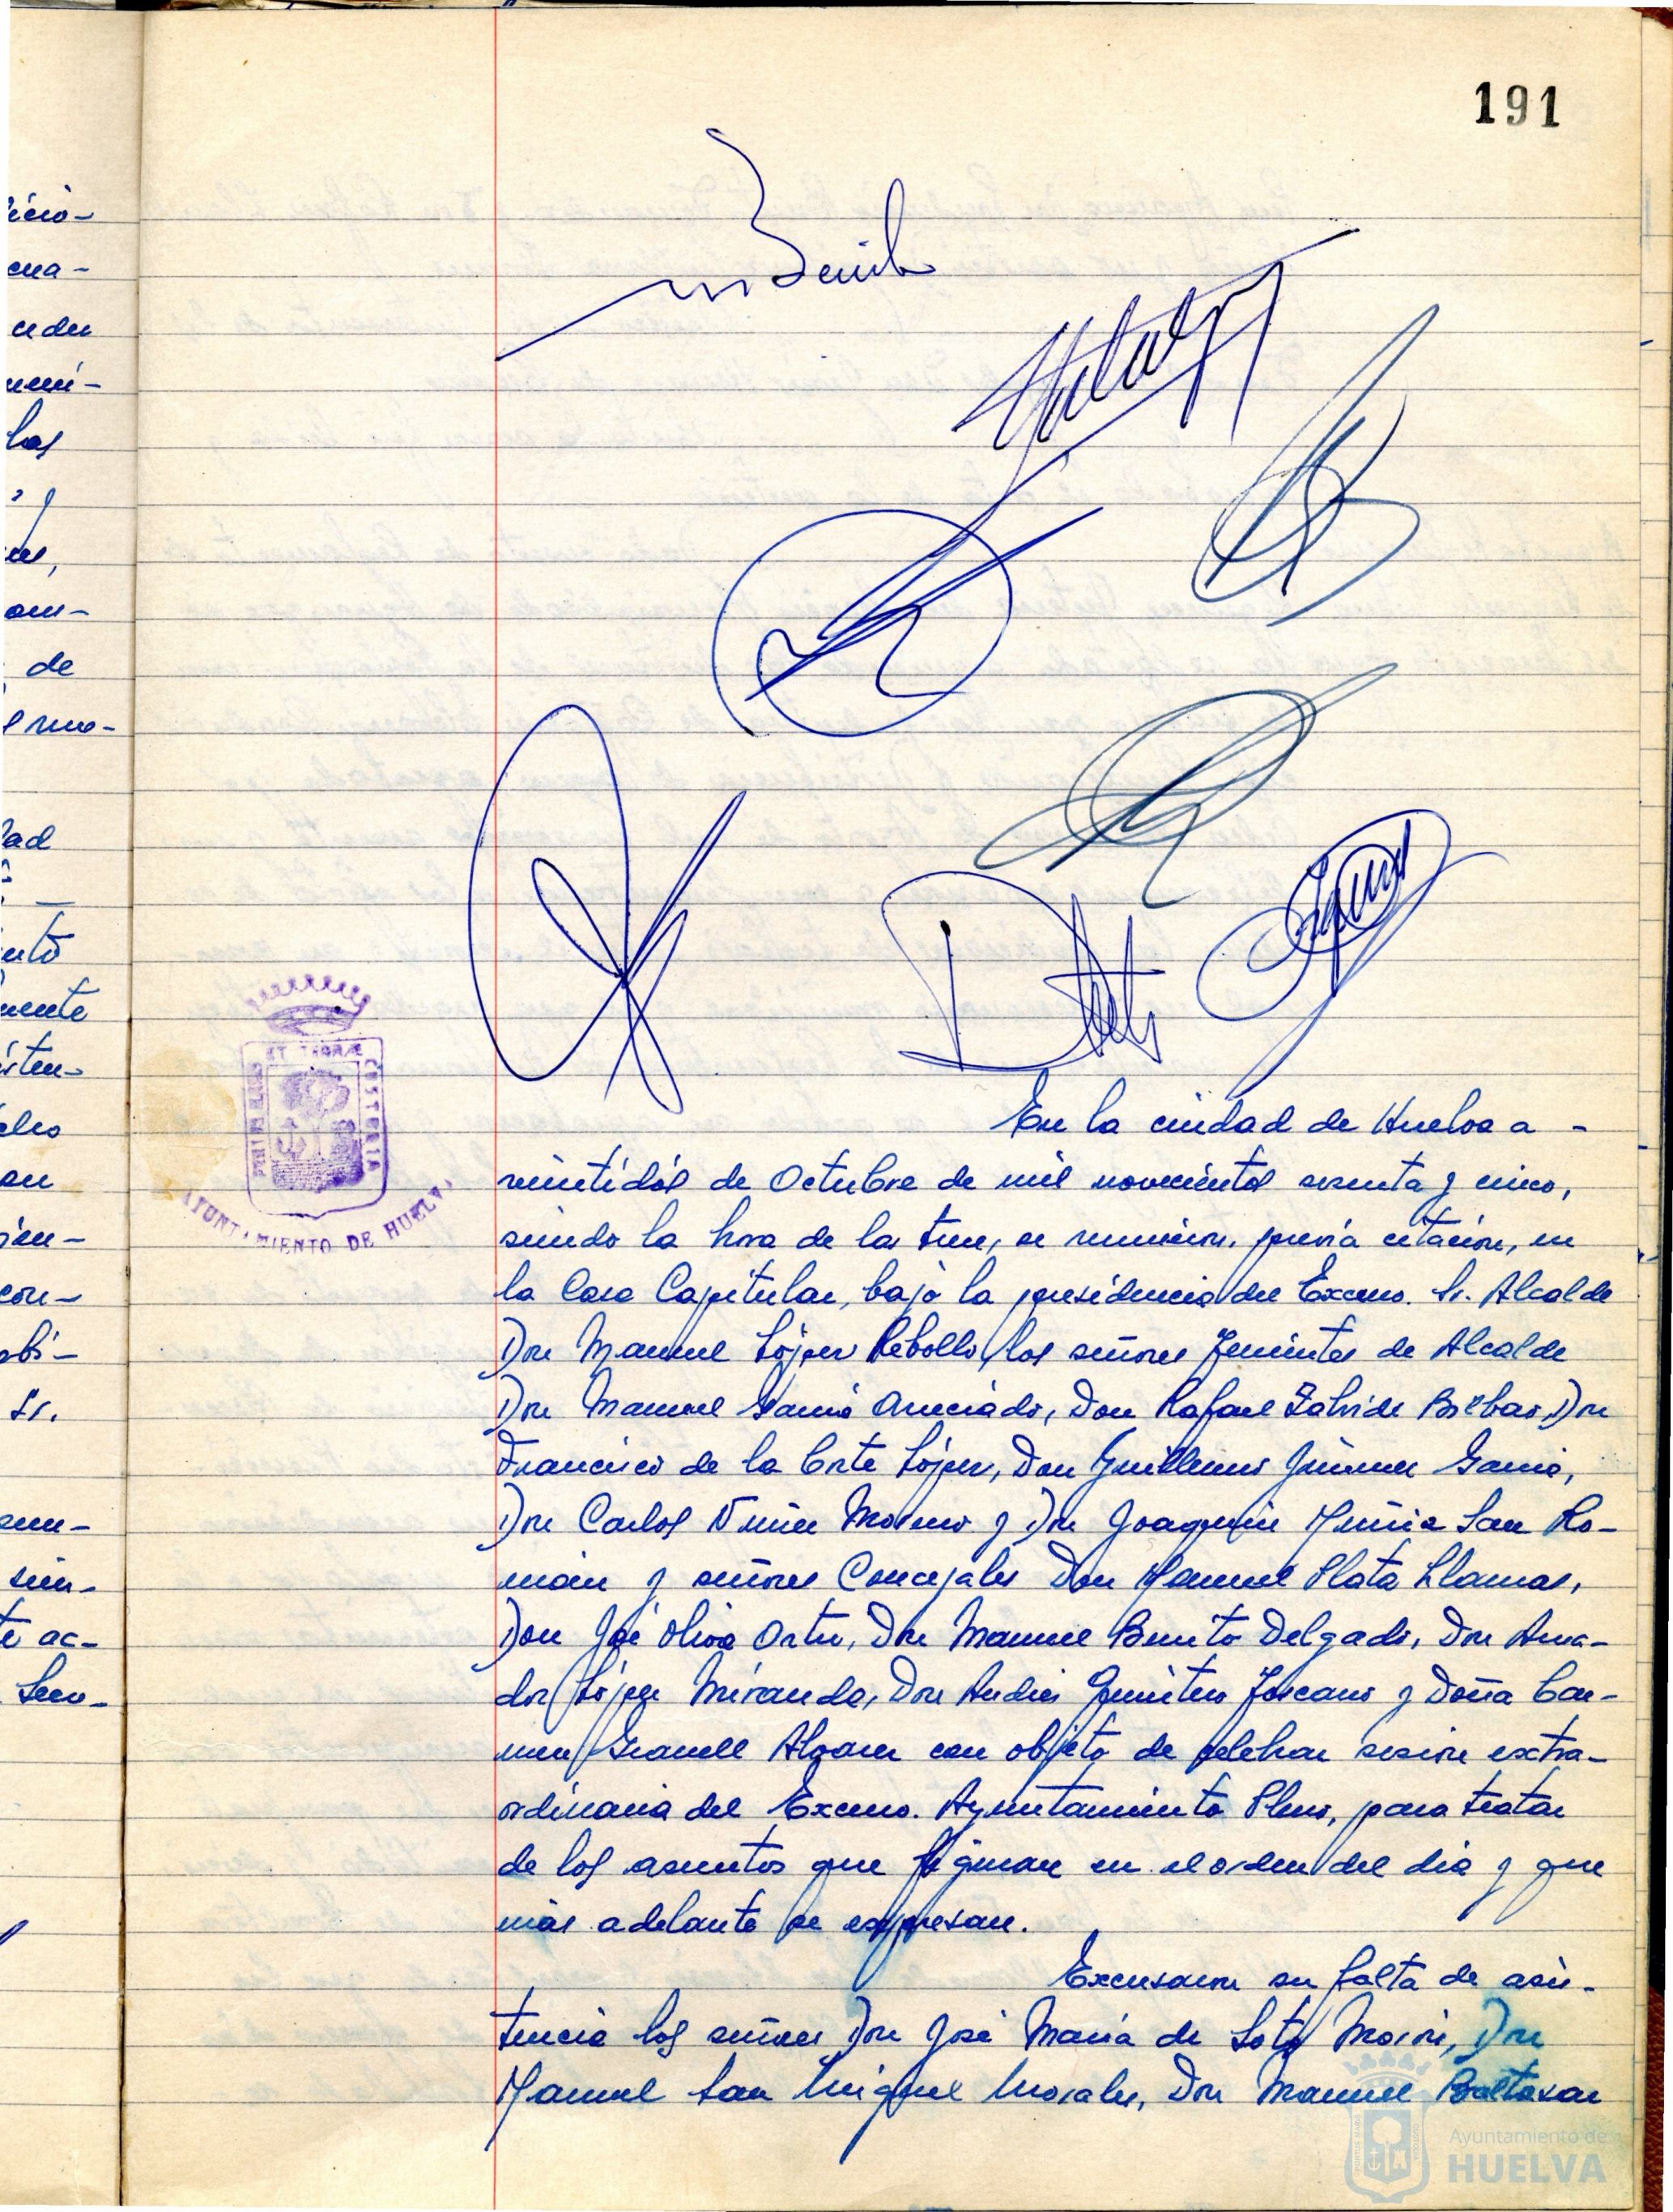 191
icio-
cua-
los
de
dad
mente
isten-
an
con-
Sr.
te ac-
Secre-
ET TERRAE CUSTODIA
AYUNTAMIENTO DE HUELVA
En la ciudad de Huelva a -
veintidós de Octubre de mil novecientos sesenta y cinco,
siendo la hora de las trece, se reunieron, previa citación, en
la Casa Capitular, bajo la presidencia del Excmo. Sr. Alcalde
Don Manuel López Rebollo, los señores Tenientes de Alcalde
Don Manuel García Anuciado, Don Rafael Zalvide Bilbao, Don
Francisco de la Corte López, Don Guillermo Jiménez García,
Don Carlos Núñez Moreno y Don Joaquín San Ro-
mán y señores Concejales Don Manuel Plata Llamas,
Don José Oliva Don Manuel Benito Delgado, Don Ama-
dor López Miranda, Don Andrés Quintero Toscano y Doña Car-
men Granell Alvarez con objeto de celebrar sesión extra-
ordinaria del Excmo. Ayuntamiento Pleno, para tratar
de los asuntos que figuran en el orden del día y que
más adelante se expresan.
Excusaron su falta de asis-
tencia los señores Don José María de Soto Morón, Don
Manuel San Miguel Morales, Don Manuel Baltasar
Ayuntamiento de
HUELVA